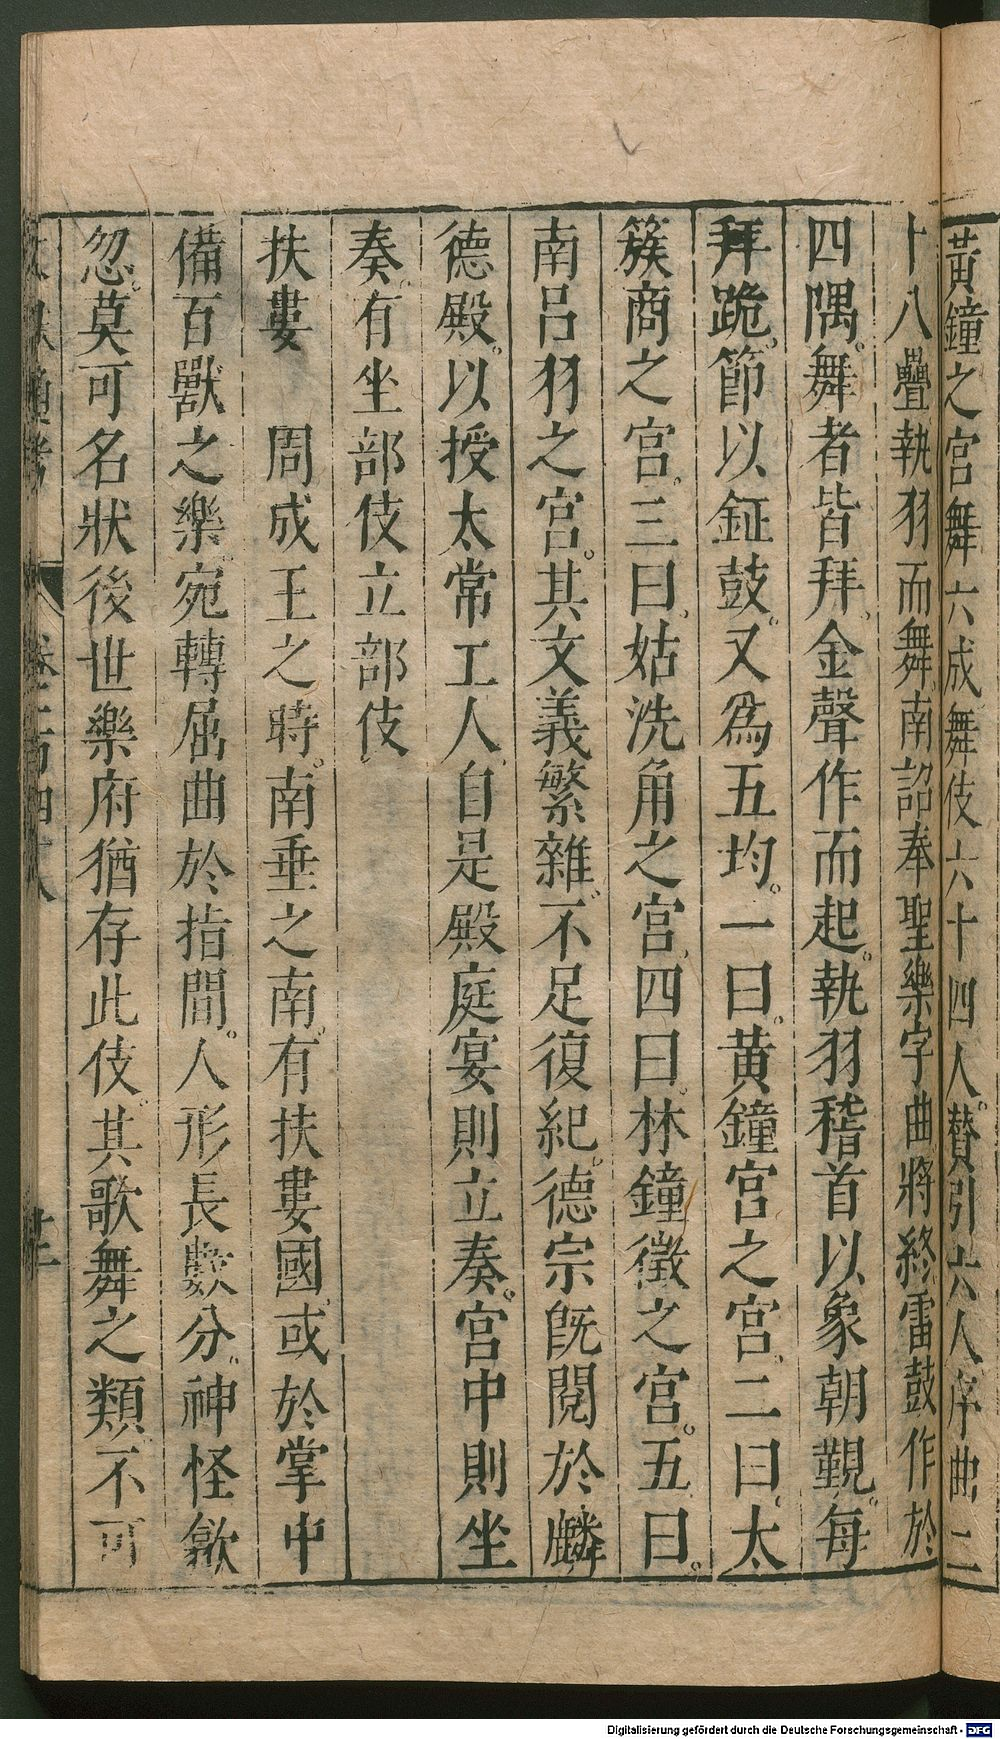 黃鐘之宮舞六成舞伎六十四人。贊引六人序曲二
十八疊執羽而舞南詔奉聖樂字曲將終雷鼓作於
四隅。舞者皆拜。金聲作而起。執羽稽首以象朝覲。每
拜跪。節以鉦鼓。又爲五均。一曰。黃鐘宮之宮。二曰。太
簇商之宮。三曰。姑洗角之宮。四曰。林鐘徵之宮。五曰。
南呂羽之宮。其文義繁雜。不足復紀。德宗旣閱於麟
德殿。以授太常工人。自是殿庭宴則立奏。宮中則坐
奏。有坐部伎立部伎
扶婁　周成王之時。南垂之南。有扶婁國。或於掌中
備百獸之樂。宛轉屈曲於指間。人形長數分。神怪歘
忽。莫可名狀後世樂府猶存此伎。其歌舞之類。不可
Digitalisierung gefördert durch die Deutsche Forschungsgemeinschaft - DFG